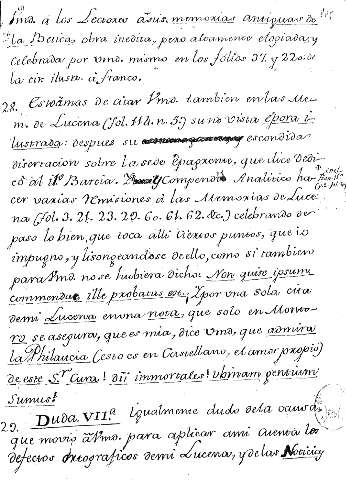 Vmd. á los Lectores á sus memorias antiguas de
la Betica, obra inedita, pero altamente elogiada, y
celebrada por vmd. mismo en los fólios 37. y 220. de
la cit. ilustr. á franco.
28. Estrañas de citar Vmd. tambien en las Me-
m. de Lucena (fol. 114. n. 5) su no vista epora i-
lustrada: despues su escondida
disertacion sobre la sede Epagrense, que dice dedi-
có al Compendio Analitico ha-
cer varias remisiones á las Memorias de Luce-
na (fol. 3. 21. 23. 29. 60. 61. 62. &c.) celebrando de
paso lo bien, que toca alli ciertos puntos, que io
impugno, y lisongeandose de ello, como si tambien
para Vmd. no se hubiera dicho: Non qui se ipsum
commendat ille probatus est. Y por una sola cita
de mi Lucena en una nota, que solo en Monto-
ro se asegura, que es mia, dice Vmd. que admira
la Philaucia (esto es en Castellano, el amor propio)
de este Sr. Cura! dii immortales! ubinam gentium
sumus!
29. Duda VII.ª Igualmente dudo de la causa,
que movio á Vmd. para aplicar á mi cuenta los
defectos ortograficos de mi Lucena, y de las Noticias